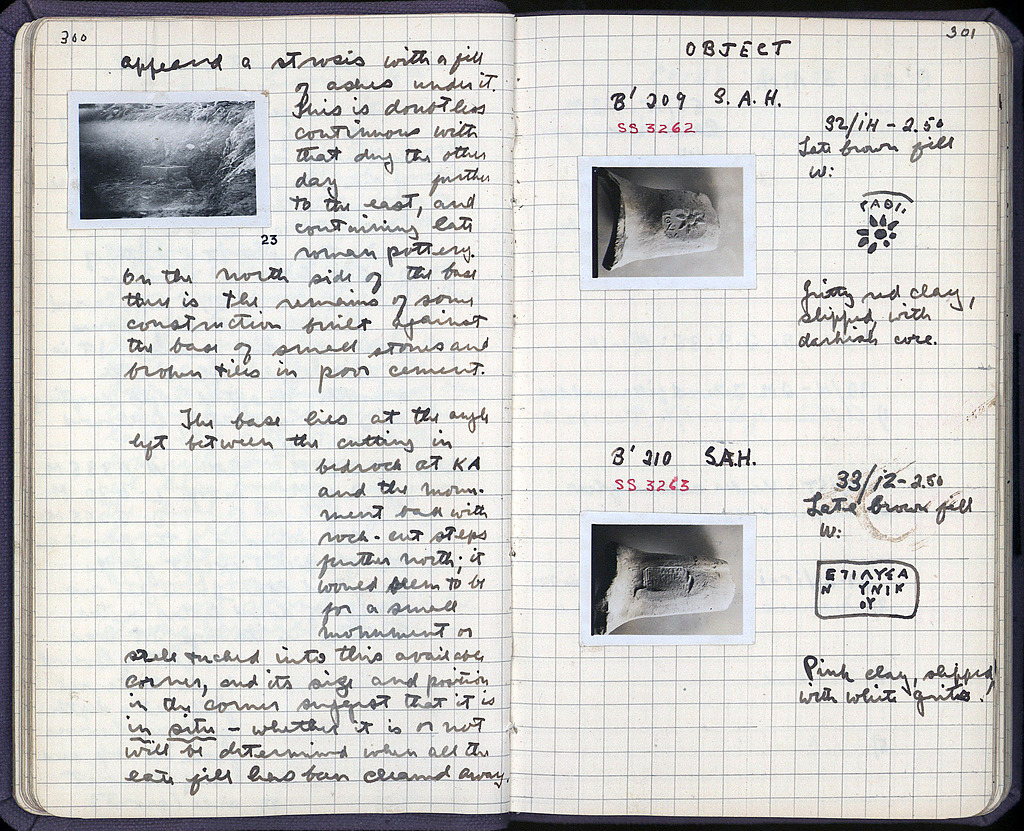 300
appeared a strosis with a fill
of ashes under it.
This is doubtless
continuous with
that dug the other
day further
to the east, and
containing late
roman pottery.
23
On the north side of the base
there is the remains of some
construction built against
the base of small stones and
brown tiles in poor cement.
The base lies at the angle
left between the cutting in
bedrock at KA
and the monu-
ment base with
rock-cut steps
further north; it
would seem to be
for a small
monument or
stele tucked into this available
corner, and its size and position
in the corner suggest that it is
in situ – whether it is or not
will be determined when all the
late fill has been cleared away.
301
OBJECT
B' 209 S.A.H.
SS 3262
32/ΙΗ - 2.50
Late brown fill
W:
ΓΑΘΙ
Gritty red clay,
slipped, with
darkish core.
B' 210 S.A.H.
SS 3263
33/ΙΖ - 2.50
Late brown fill
W:
ΕΠΙΛΥΣΑ
Ν ΥΝΙΚ
ΟΥ
Pink clay, slipped
with white grits.